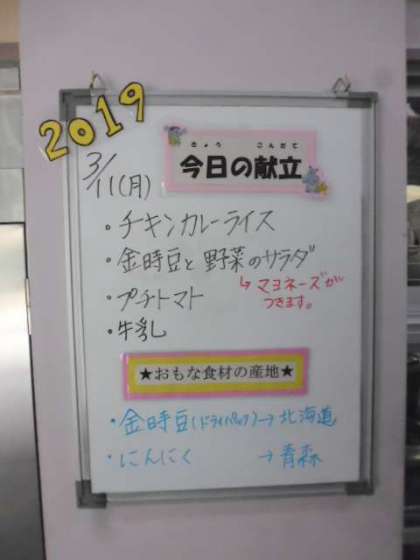 2019
3/11(月)
きょう こんだて
今日の献立
・チキンカレーライス
・金時豆と野菜のサラダ
↳マヨネーズが
つきます。
・プチトマト
・牛乳
★おもな食材の産地★
・金時豆(ドライパック)→北海道
・にんにく →青森